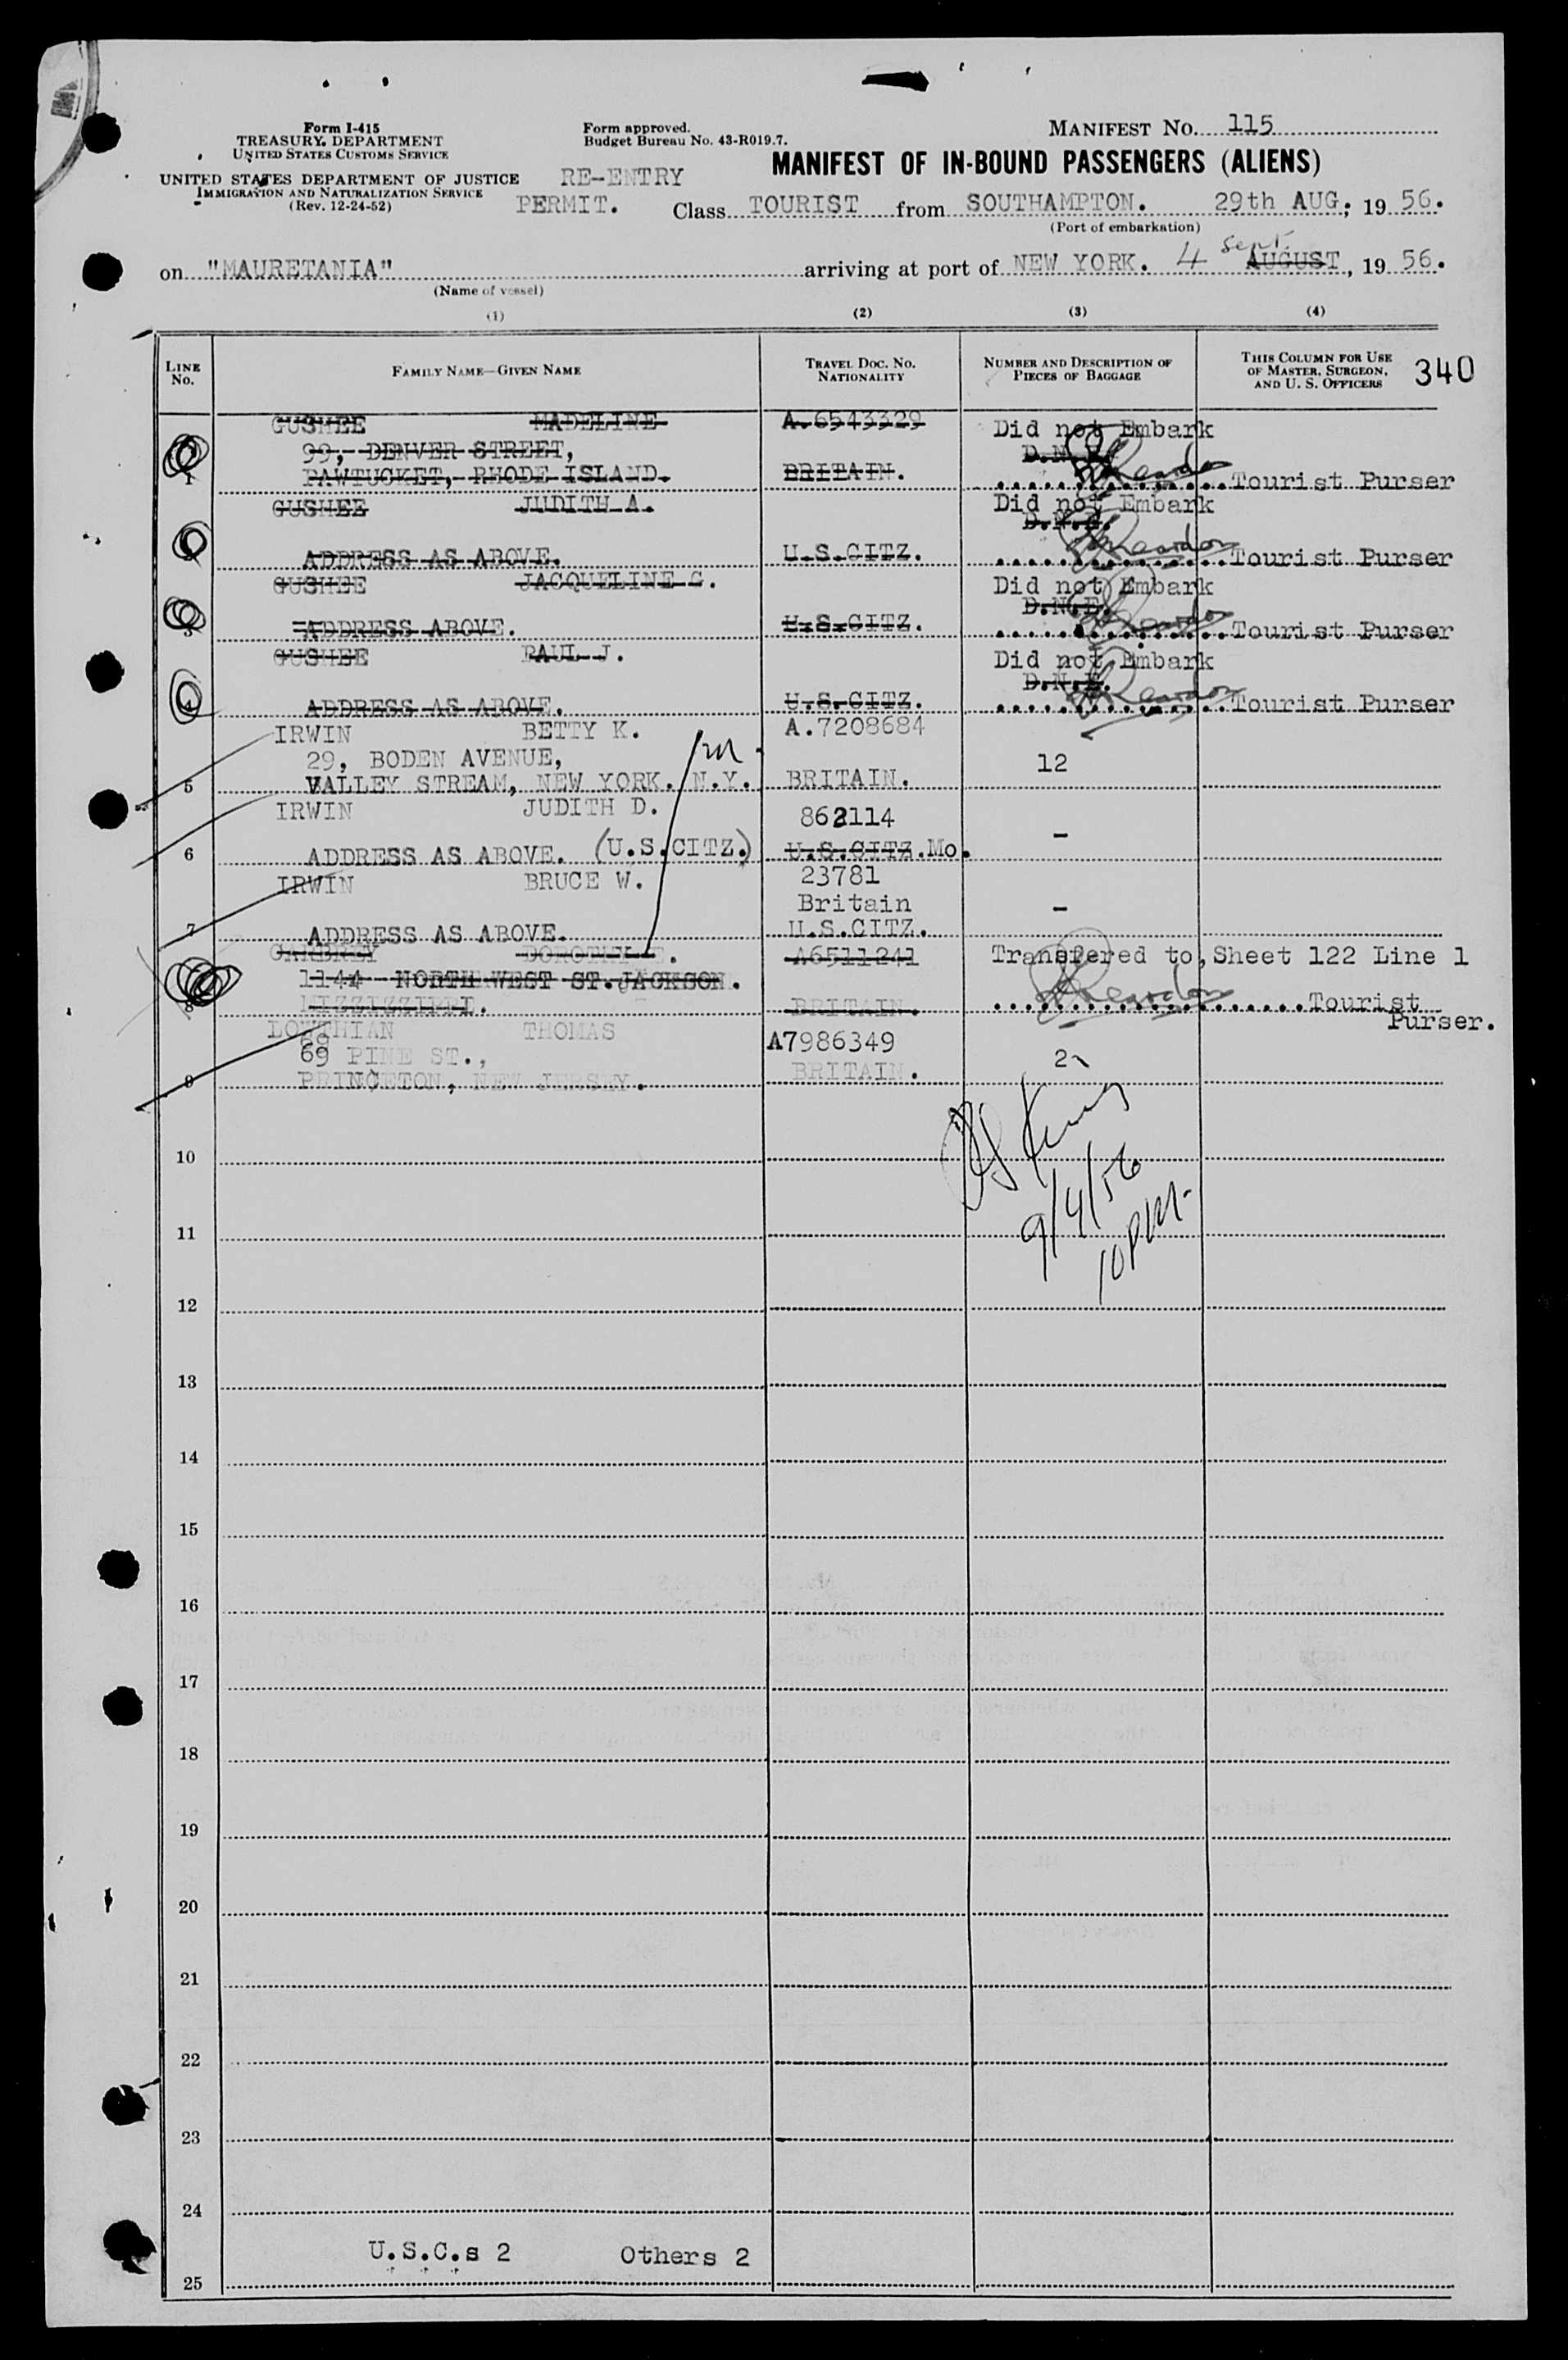 Form I-415
TREASURY DEPARTMENT
UNITED STATES CUSTOMS SERVICE
UNITED STATES DEPARTMENT OF JUSTICE
IMMIGRATION AND NATURALIZATION SERVICE
(Rev. 12-24-52)
Form approved.
Budget Bureau No. 43-R019.7.
MANIFEST No. 115
MANIFEST OF IN-BOUND PASSENGERS (ALIENS)
RE-ENTRY
PERMIT.
Class TOURIST from SOUTHAMPTON. 29th AUG; 19 56.
(Port of embarkation)
on "MAURETANIA" arriving at port of NEW YORK. 4 Sept. AUGUST, 19 56.
(Name of vessel)
(1) (2) (3) (4)
LINE No. FAMILY NAME—GIVEN NAME TRAVEL DOC. NO. NATIONALITY NUMBER AND DESCRIPTION OF PIECES OF BAGGAGE THIS COLUMN FOR USE OF MASTER, SURGEON, AND U. S. OFFICERS 340
GUSHEE MADELINE A.6543329 Did not Embark
99, DENVER STREET, D.N.E.
1 PAWTUCKET, RHODE ISLAND. BRITAIN. Reardon Tourist Purser
GUSHEE JUDITH A. Did not Embark
D.N.E.
ADDRESS AS ABOVE. U.S.CITZ. Reardon Tourist Purser
GUSHEE JACQUELINE G. Did not Embark
D.N.E.
3 ADDRESS ABOVE. U.S.CITZ. Reardon Tourist Purser
GUSHEE PAUL J. Did not Embark
D.N.E.
4 ADDRESS AS ABOVE. U.S.CITZ. Reardon Tourist Purser
IRWIN BETTY K. A.7208684
29, BODEN AVENUE, 12
5 VALLEY STREAM, NEW YORK. N.Y. BRITAIN.
IRWIN JUDITH D. 862114
6 ADDRESS AS ABOVE. (U.S.CITZ.) U.S.CITZ.Mo. –
IRWIN BRUCE W. 23781
Britain –
7 ADDRESS AS ABOVE. U.S.CITZ.
DOROTHY E. A6511241 Transfered to, Sheet 122 Line 1
1144 NORTH WEST ST. JACKSON.
8 MIZZIZZIPPI. BRITAIN. Reardon Tourist
Purser.
LOWTHIAN THOMAS A7986349
69
69 PINE ST., 2
9 PRINCETON, NEW JERSEY. BRITAIN.
9/4/56
10 PM.
10
11
12
13
14
15
16
17
18
19
20
21
22
23
24
U.S.C.s 2 Others 2
25